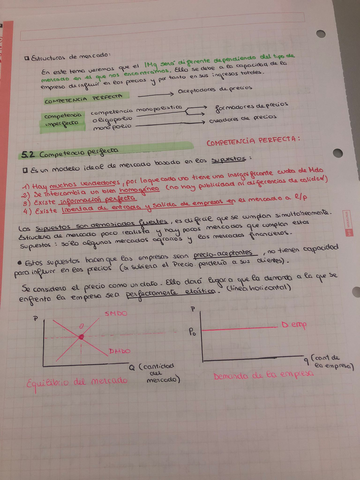 Estructuras de mercado:
En este tema veremos que el IMg será diferente dependiendo del tipo de
mercado en el que nos encontremos. Ello se debe a la capacidad de la
empresa de influir en los precios y por tanto en sus ingresos totales.
COMPETENCIA PERFECTA → Aceptadores de precios
competencia imperfecta
competencia monopolística
oligopolio
monopolio
formadores de precios
creadores de precios
5.2 Competencia perfecta
COMPETENCIA PERFECTA:
Es un modelo ideal de mercado basado en los supuestos:
1) Hay muchos vendedores, por lo que cada uno tiene una insignificante cuota de Mdo
2) Se intercambia un bien homogéneo (no hay publicidad ni diferencias de calidad)
3) Existe información perfecta
4) Existe libertad de entrada y salida de empresas en el mercado a l/p
Los supuestos son demasiado fuertes, es difícil que se cumplan simultáneamente.
Estructura de mercado poco realista y hay pocos mercados que cumplan estos
supuestos: solo algunos mercados agrarios y los mercados financieros.
• Estos supuestos hacen que las empresas sean precio-aceptantes, no tienen capacidad
para influir en los precios (si subiera el Precio perdería a sus clientes).
Se considera el precio como un dato. Ello dará lugar a que la demanda a la que se
enfrenta la empresa sea perfectamente elástica. (línea horizontal)
P
SMDO
DMDO
Q (cantidad
del
mercado)
Equilibrio del mercado
P
P₀
D emp
q (cant de
la empresa)
Demanda de la empresa